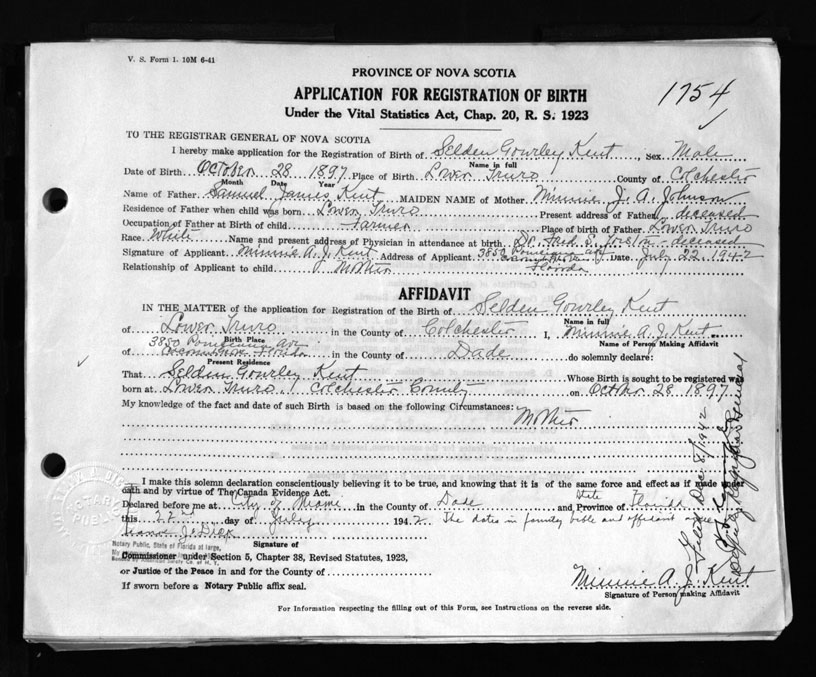 V. S. Form 1. 10M 6-41
PROVINCE OF NOVA SCOTIA
APPLICATION FOR REGISTRATION OF BIRTH
1754
Under the Vital Statistics Act, Chap. 20, R. S. 1923
TO THE REGISTRAR GENERAL OF NOVA SCOTIA
I hereby make application for the Registration of Birth of Selden Gourley Kent, Sex Male
Name in full
Date of Birth October 28 1897 Place of Birth Lower Truro County of Colchester
Month Date Year
Name of Father Samuel James Kent MAIDEN NAME of Mother Minnie J. A. Johnson
Residence of Father when child was born Lower Truro Present address of Father deceased
Occupation of Father at Birth of child Farmer Place of birth of Father Lower Truro
Race White Name and present address of Physician in attendance at birth Dr. Fred E. - deceased
Signature of Applicant Minnie A. J. Kent Address of Applicant 3850 Florida Date July 22 1942
Relationship of Applicant to child Mother
AFFIDAVIT
IN THE MATTER of the application for Registration of the Birth of Selden Gourley Kent
Name in full
of Lower Truro in the County of Colchester I, Minnie A. J. Kent
Birth Place Name of Person Making Affidavit
3850 Ave
of Florida in the County of Dade do solemnly declare:
Present Residence
That Selden Gourley Kent Whose Birth is sought to be registered was
born at Lower Truro Colchester County on October 28 1897
My knowledge of the fact and date of such Birth is based on the following Circumstances:
Mother
I make this solemn declaration conscientiously believing it to be true, and knowing that it is of the same force and effect as if made under
oath and by virtue of The Canada Evidence Act.
Declared before me at City of Miami in the County of Dade and Province of State Florida
this 22nd day of July 1942 The dates in family bible and affidavit agree
Notary Public, State of Florida at large,
Signature of
Commissioner under Section 5, Chapter 38, Revised Statutes, 1923,
or Justice of the Peace in and for the County of
If sworn before a Notary Public affix seal.
Minnie A. J. Kent
Signature of Person making Affidavit
For Information respecting the filling out of this Form, see Instructions on the reverse side.
Filed Dec 8/1942
Deputy Registrar General
NOTARY PUBLIC